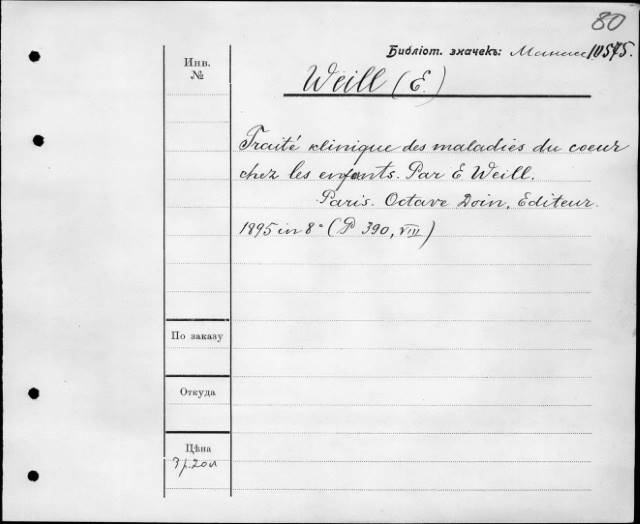 80
Библіот. значекъ: 10575.
Инв.
№
Weill (E.)
Traité klinique des maladies du coeur
chez les enfants. Par E Weill.
Paris. Octave Doin, Editeur.
1895 in 8° (P 390, VIII)
По заказу
Откуда
Цѣна
3 р. 20 к